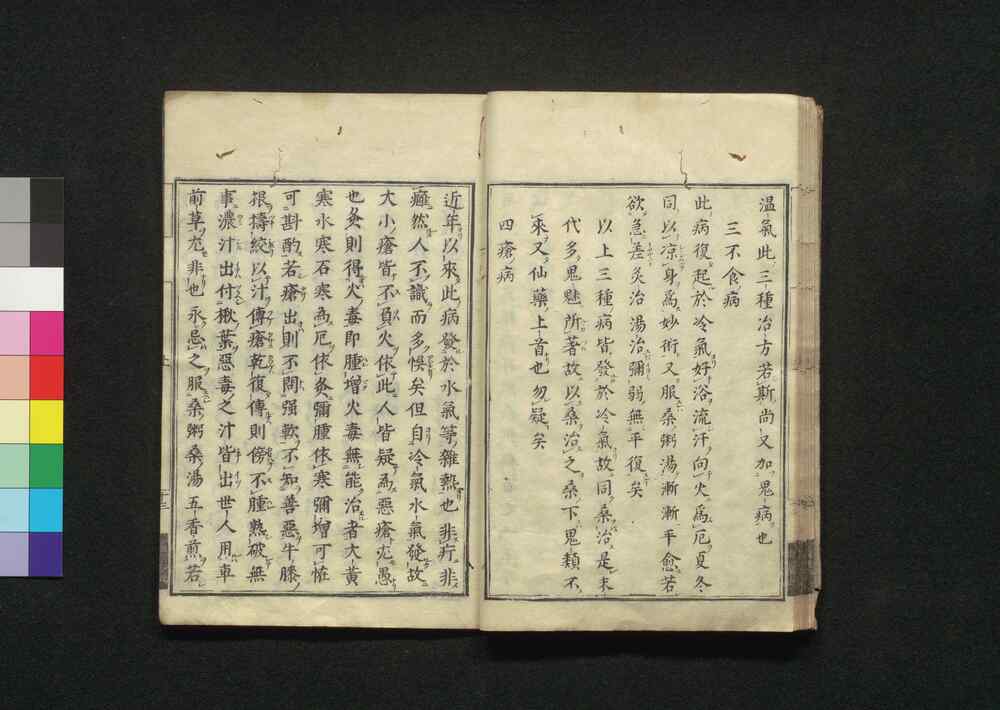 温氣此三種治方若斯尚又加鬼病也
三不食病
此病復起於冷氣好浴流汗向火爲厄夏冬
同以凉身爲妙術又服桑粥湯漸漸平愈若
欲急差灸治湯治彌弱無平復矣
以上三種病皆發於冷氣故同桑治是末
代多鬼魅所著故以桑治之桑下鬼類不
來又仙藥上首也勿疑矣
四瘡病
近年以來此病發於水氣等雜熱也非疔非
癰然人不識而多悞矣但自冷氣水氣發故
大小瘡皆不負火依此人皆疑爲惡瘡尤愚
也灸則得火毒即腫增火毒無能治者大黄
寒水寒石寒爲厄依灸彌腫依寒彌增可恠
可斟酌若瘡出則不問强軟不知善惡牛膝
根擣絞以汁傳瘡乾復傳則傍不腫熟破無
事濃汁出付楸葉惡毒之汁皆出世人用車
前草尤非也永忌之服桑粥桑湯五香煎若